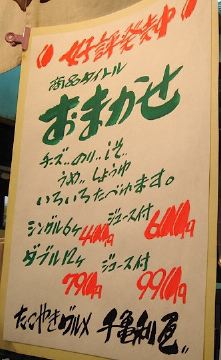 好評発売中
商品タイトル
おまかせ
チーズ、のり、しそ、
うめ、しょうゆ
いろいろたべれます。
シングル6ヶ 400円 ジュース付 600円
ダブル12ヶ 790円 ジュース付 990円
たこやきグルメ 千亀利屋